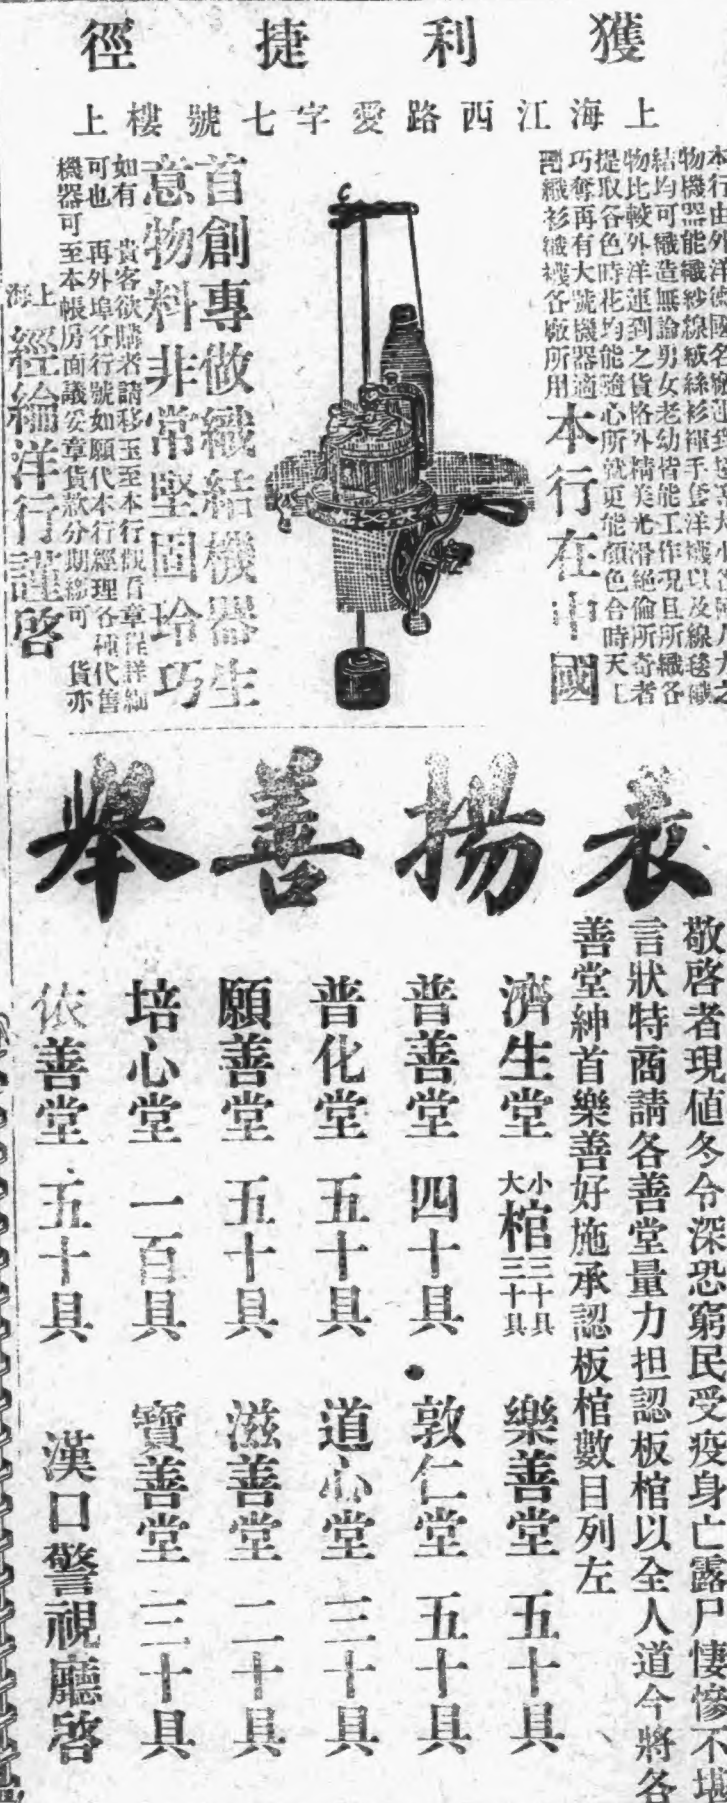 獲利捷徑
上海江西路愛字七號樓上
本行由外洋德國名廠
物機器能織紗線絨絲衫褲手套洋襪以及線毯織
結均可織造無論男女老幼皆能工作况且所織各
物比較外洋運到之貨格外精美光滑絶倫所奇者
提取各色時花均能適心所就更能顔色合時天工
巧奪再有大號機器適
織衫織襪各廠所用
本行在中國
首創專做織結機器生
意物料非常堅固玲巧
如有 貴客欲購者請移玉至本行觀看章程詳細
可也 再外埠各行號如願代本行經理各種代售
機器可至本帳房面議妥章貨款分期繳可 貨亦
上海 經綸洋行謹啓
表揚善舉
敬啓者現値冬令深恐窮民受疫身亡露尸悽慘不堪
言狀特商請各善堂量力担認板棺以全人道今將各
善堂紳首樂善好施承認板棺數目列左
濟生堂 大小棺三十具三十具 樂善堂 五十具
普善堂 四十具 敦仁堂 五十具
普化堂 五十具 道心堂 三十具
願善堂 五十具 滋善堂 二十具
培心堂 一百具 寶善堂 三十具
依善堂 五十具 漢口警視廳啓